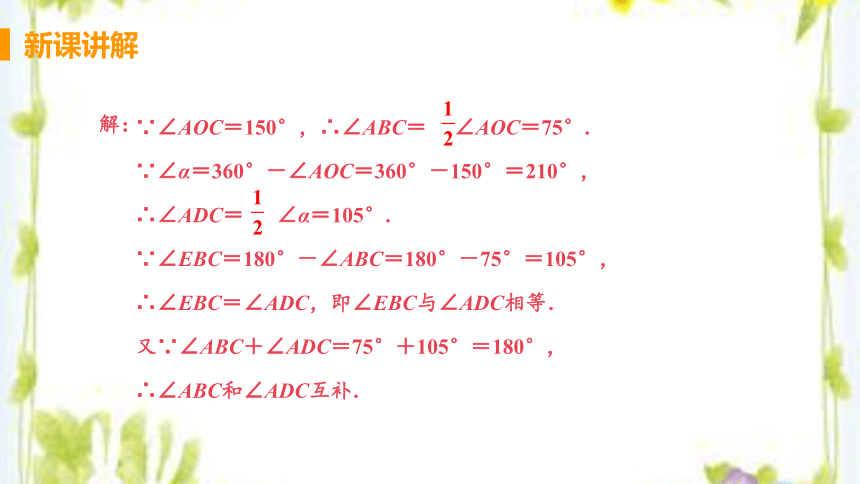 新课讲解
解:∵∠AOC=150°,∴∠ABC= 1/2 ∠AOC=75°.
∵∠α=360°-∠AOC=360°-150°=210°,
∴∠ADC= 1/2 ∠α=105°.
∵∠EBC=180°-∠ABC=180°-75°=105°,
∴∠EBC=∠ADC,即∠EBC与∠ADC相等.
又∵∠ABC+∠ADC=75°+105°=180°,
∴∠ABC和∠ADC互补.